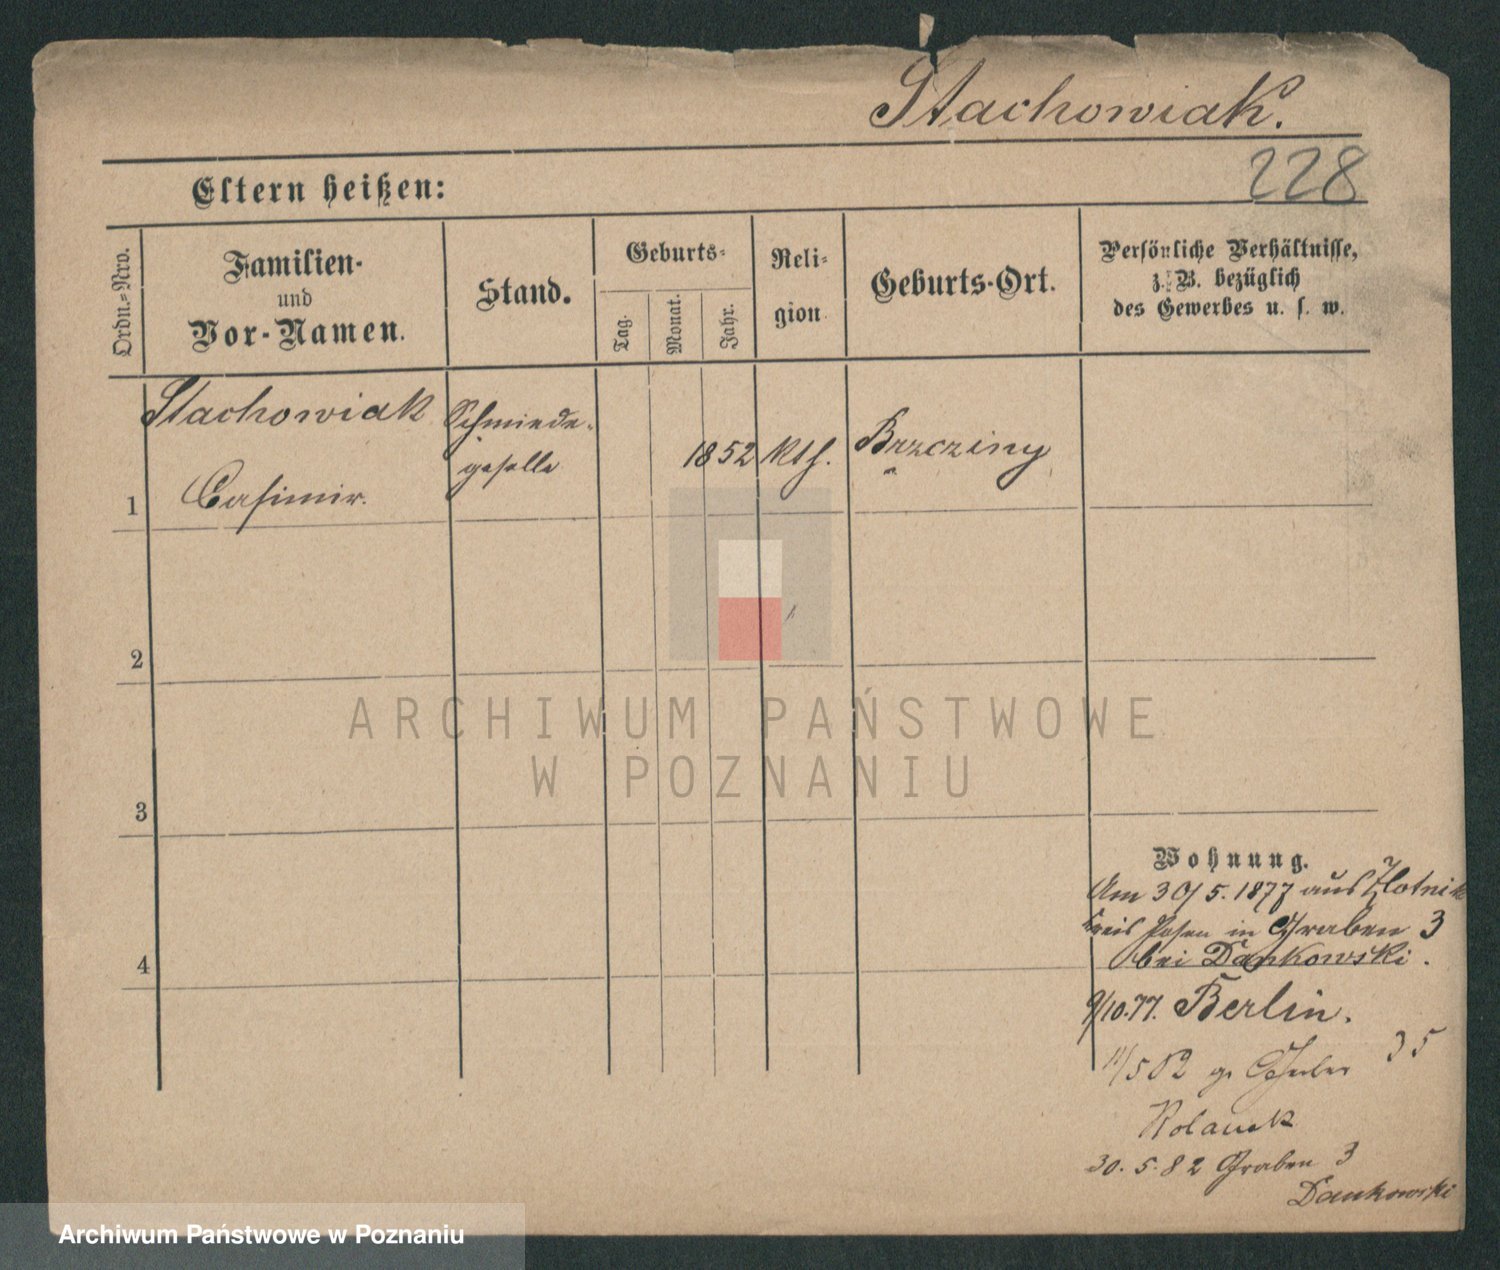 Stachowiak.
228
Eltern heißen:
Ordn.=Nro.
Familien-
und
Vor-Namen.
Stand.
Geburts-
Tag.
Monat.
Jahr.
Reli-
gion
Geburts-Ort.
Persönliche Verhältnisse,
z. B. bezüglich
des Gewerbes u. s. w.
1
Stachowiak
Casimir.
Schmiede-
geselle
1852
kth.
Brzeziny
2
3
4
Wohnung.
Am 30/5. 1877 aus Zlotnik
Kreis Posen in Graben 3
bei Dankowski.
9/10.77. Berlin.
11/5 82 gr. 35
30. 5. 82 Graben 3
Dankowski
ARCHIWUM PAŃSTWOWE
W POZNANIU
Archiwum Państwowe w Poznaniu